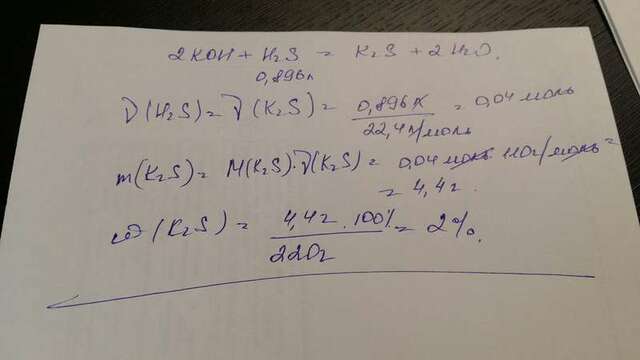 2KOH + H₂S = K₂S + 2H₂O.
0,896л
ν(H₂S) = ν(K₂S) = 0,896л / 22,4л/моль = 0,04 моль
m(K₂S) = M(K₂S)·ν(K₂S) = 0,04 моль · 110г/моль =
= 4,4г.
ω(K₂S) = 4,4г · 100% / 220г = 2%.